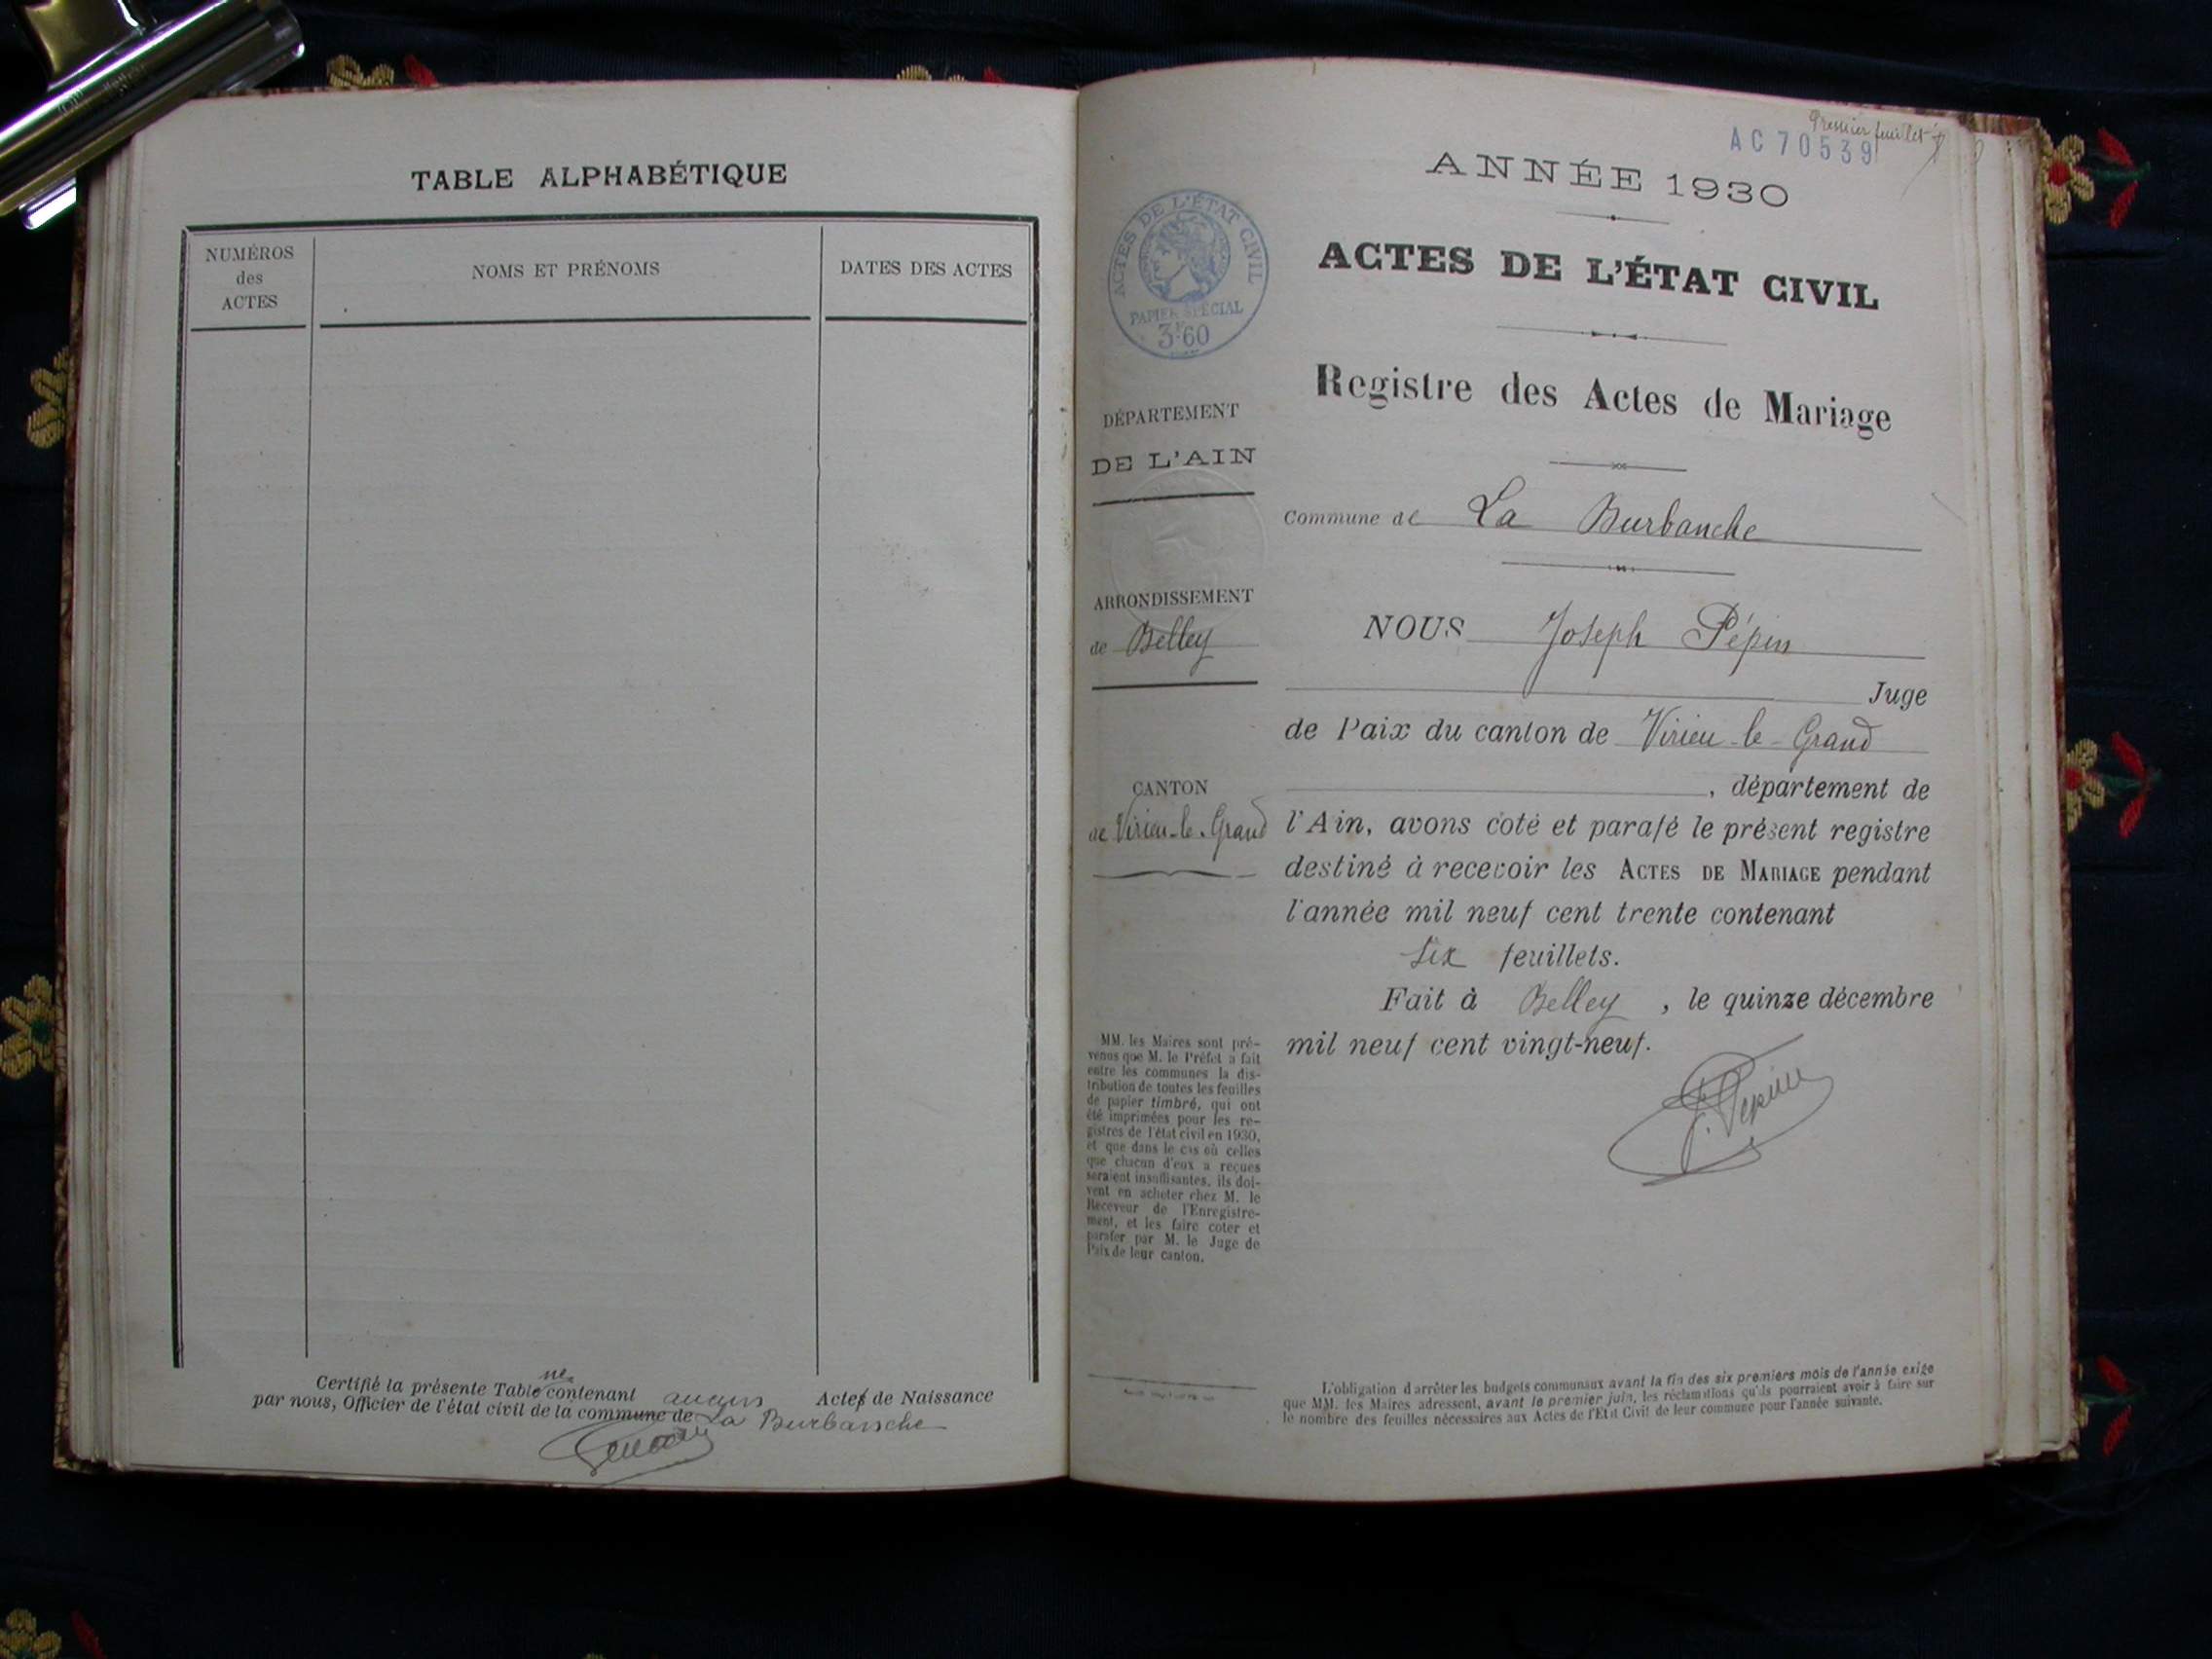 TABLE ALPHABÉTIQUE
NUMÉROS
des
ACTES
NOMS ET PRÉNOMS
DATES DES ACTES
ne
Certifié la présente Table contenant aucun Actes de Naissance
par nous, Officier de l'état civil de la commune de La Burbanche
Premier feuillet
AC 70539
ANNÉE 1930
ACTES DE L'ÉTAT CIVIL
PAPIER SPÉCIAL
3F60
ACTES DE L'ÉTAT CIVIL
Registre des Actes de Mariage
DÉPARTEMENT
DE L'AIN
Commune de La Burbanche
ARRONDISSEMENT
de Belley
NOUS Joseph Pépin
Juge
de Paix du canton de Virieu-le-Grand
CANTON
de Virieu-le-Grand
, département de
l'Ain, avons coté et parafé le présent registre
destiné à recevoir les ACTES DE MARIAGE pendant
l'année mil neuf cent trente contenant
six feuillets.
Fait à Belley, le quinze décembre
mil neuf cent vingt-neuf.
J. Pepin
MM. les Maires sont pré-
venus que M. le Préfet a fait
entre les communes la dis-
tribution de toutes les feuilles
de papier timbré, qui ont
été imprimées pour les re-
gistres de l'état civil en 1930,
et que dans le cas où celles
que chacun d'eux a reçues
seraient insuffisantes, ils doi-
vent en acheter chez M. le
Receveur de l'Enregistre-
ment, et les faire coter et
parafer par M. le Juge de
Paix de leur canton.
L'obligation d'arrêter les budgets communaux avant la fin des six premiers mois de l'année exige
que MM. les Maires adressent, avant le premier juin, les réclamations qu'ils pourraient avoir à faire sur
le nombre des feuilles nécessaires aux Actes de l'Etat Civil de leur commune pour l'année suivante.